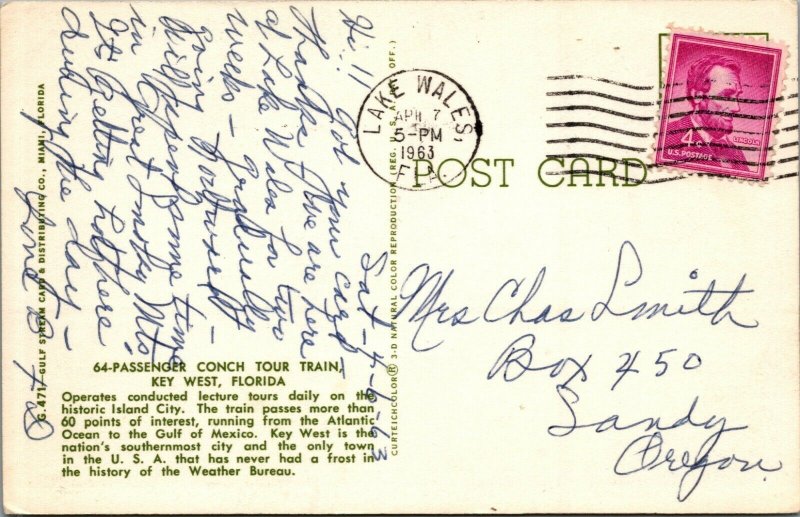 Sat - 4-6-63
Hi!! Got your card -
Thanks. We are here
at Lake Wales for two
weeks - gradually
going Northward -
Will spend some time
in Great Smoky Mts.
It's getting hot here
during the day -
Love
G.471-GULF STREAM CARD & DISTRIBUTING CO., MIAMI, FLORIDA
64-PASSENGER CONCH TOUR TRAIN,
KEY WEST, FLORIDA
Operates conducted lecture tours daily on the
historic Island City. The train passes more than
60 points of interest, running from the Atlantic
Ocean to the Gulf of Mexico. Key West is the
nation's southernmost city and the only town
in the U. S. A. that has never had a frost in
the history of the Weather Bureau.
CURTEICHCOLOR® 3-D NATURAL COLOR REPRODUCTION (REG. U. S. PAT. OFF.)
LAKE WALES,
APR 7
5-PM
1963
FLA.
POST CARD
4¢
LINCOLN
U.S. POSTAGE
Mrs Chas Smith
Box 450
Sandy
Oregon